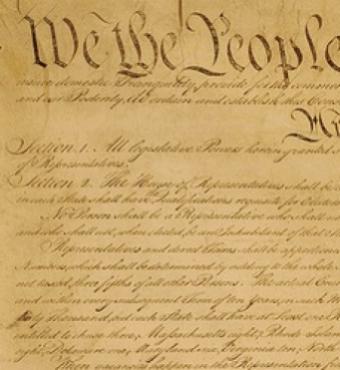 We the People
insure domestic Tranquility, provide for the common
and our Posterity, do ordain and establish this Cons
Section. 1. All legislative Powers herein granted
of Representatives.
Section. 2. The House of Representatives shall be
in each State shall have Qualifications requisite for Electors
No Person shall be a Representative who shall not
and who shall not, when elected, be an Inhabitant of that
Representatives and direct Taxes shall be apportioned
Numbers, which shall be determined by adding to the whole
not taxed, three fifths of all other Persons. The actual Enu
and within every subsequent Term of ten Years, in such
thirty Thousand, but each State shall have at Least one
entitled to chuse three, Massachusetts eight, Rhode Island
eight, Delaware one, Maryland six, Virginia ten, North
When vacancies happen in the Representation fr